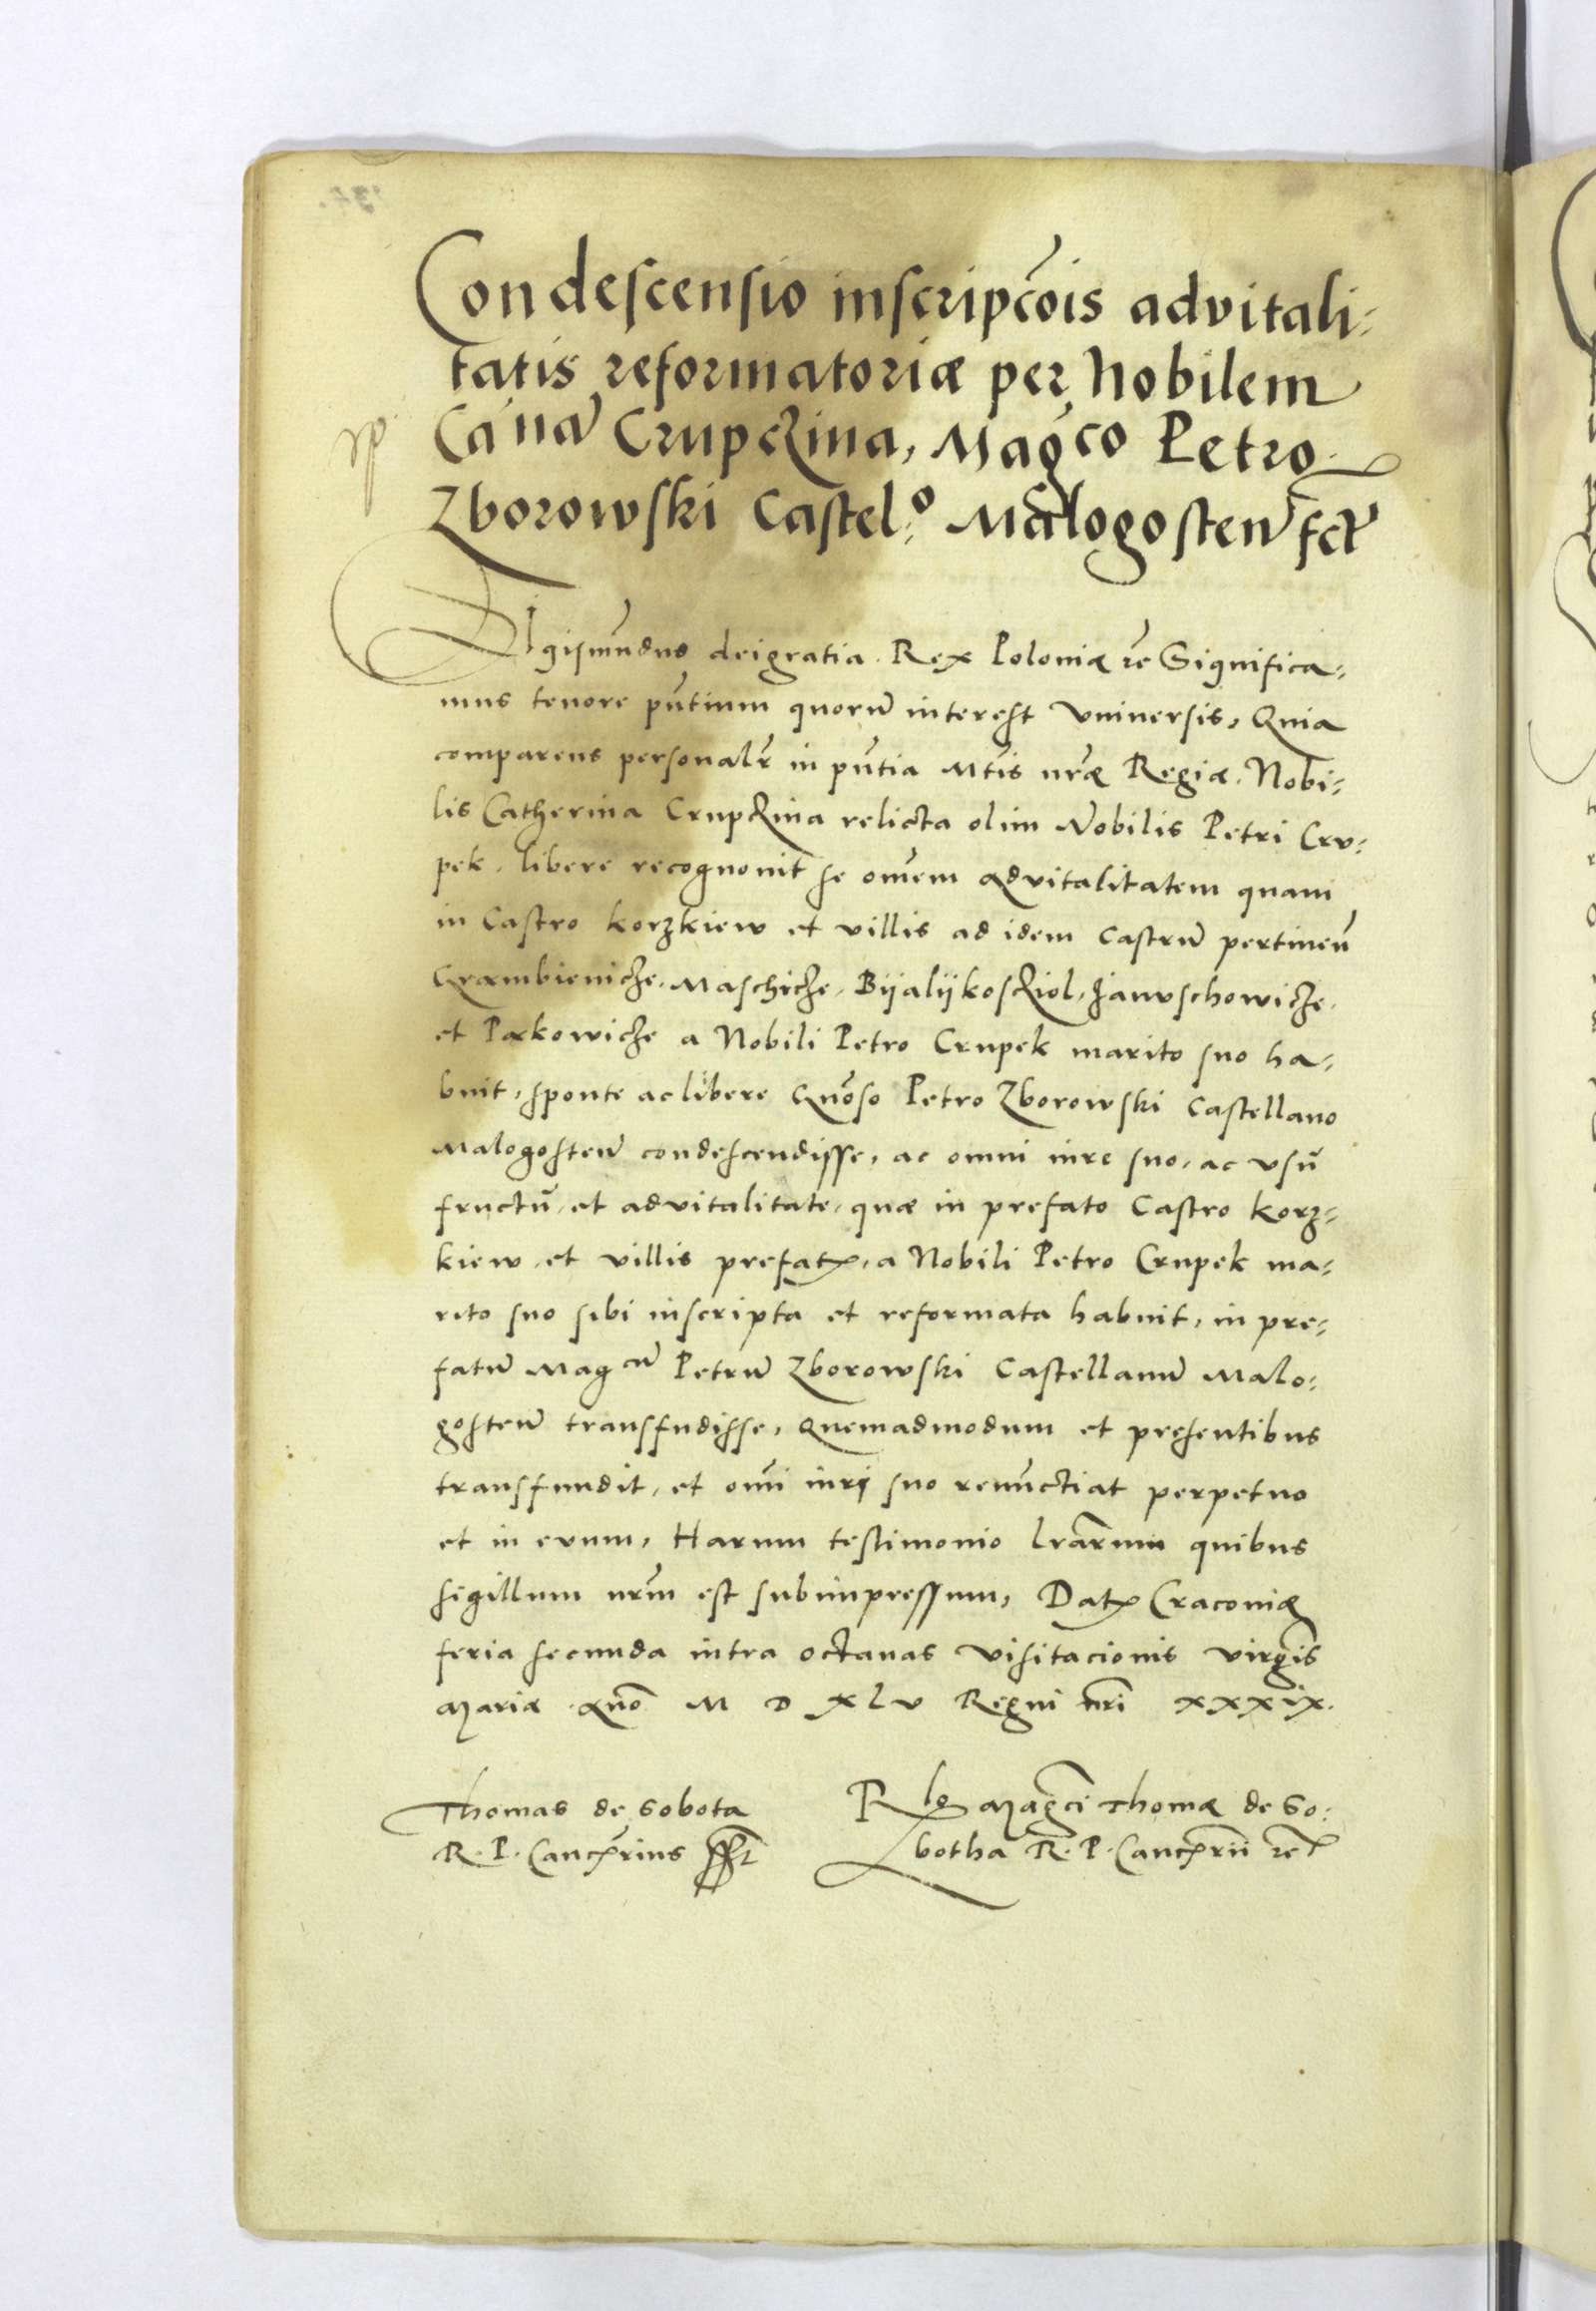 Condescensio inscripc̃ois advitali⸗
tatis reformatoriæ per Nobilem
Ca'nã Crupczina, Magco Petro
Zborowski Castel:o Malogosteñ fct
Sigismũdus dei gratia Rex Poloniæ etc̃ Significa⸗
mus tenore pñtium quorũ interest vniuersis, Quia
comparens personalr̃ in pñtia Mtis nr̃æ Regiæ Nobi⸗
lis Catherina Crupczina relicta olim Nobilis Petri Cru⸗
pek, libere recognouit se om̃em advitalitatem quam
in Castro Korzkiew et villis ad idem castrũ pertineñ
Grambieniche, Maschiche, Bijalijkoscziol, Januschowicze,
et Pækowicze a Nobili Petro Crupek marito suo ha⸗
buit, sponte ac libere Gñoso Petro Zborowski Castellano
Malogosteñ condescendisse, ac omni iure suo, ac vsũ
fructũ, et advitalitate, quæ in prefato Castro Korz⸗
kiew, et villis prefatꝭ, a Nobili Petro Crupek ma⸗
rito suo sibi inscripta et reformata habuit, in pre⸗
fatũ Magcũ Petrũ Zborowski Castellanũ Malo⸗
gosteñ transfudisse, Quemadmodum et presentibus
transfundit, et om̃i iuri suo renũctiat perpetuo
et in evum, Harum testimonio lr̃arum quibus
sigillum nr̃m est subimpressum, Datꝭ Cracouiæ
feria secunda intra octauas Visitacionis virg̃is
Mariæ Año M D XLV Regni nr̃i XXXIX.
Thomas de Sobota
R. P. Canc̃rius sst
Rlo Mag̃ci Thomæ de So⸗
botha R. P. Canc̃rii etc̃